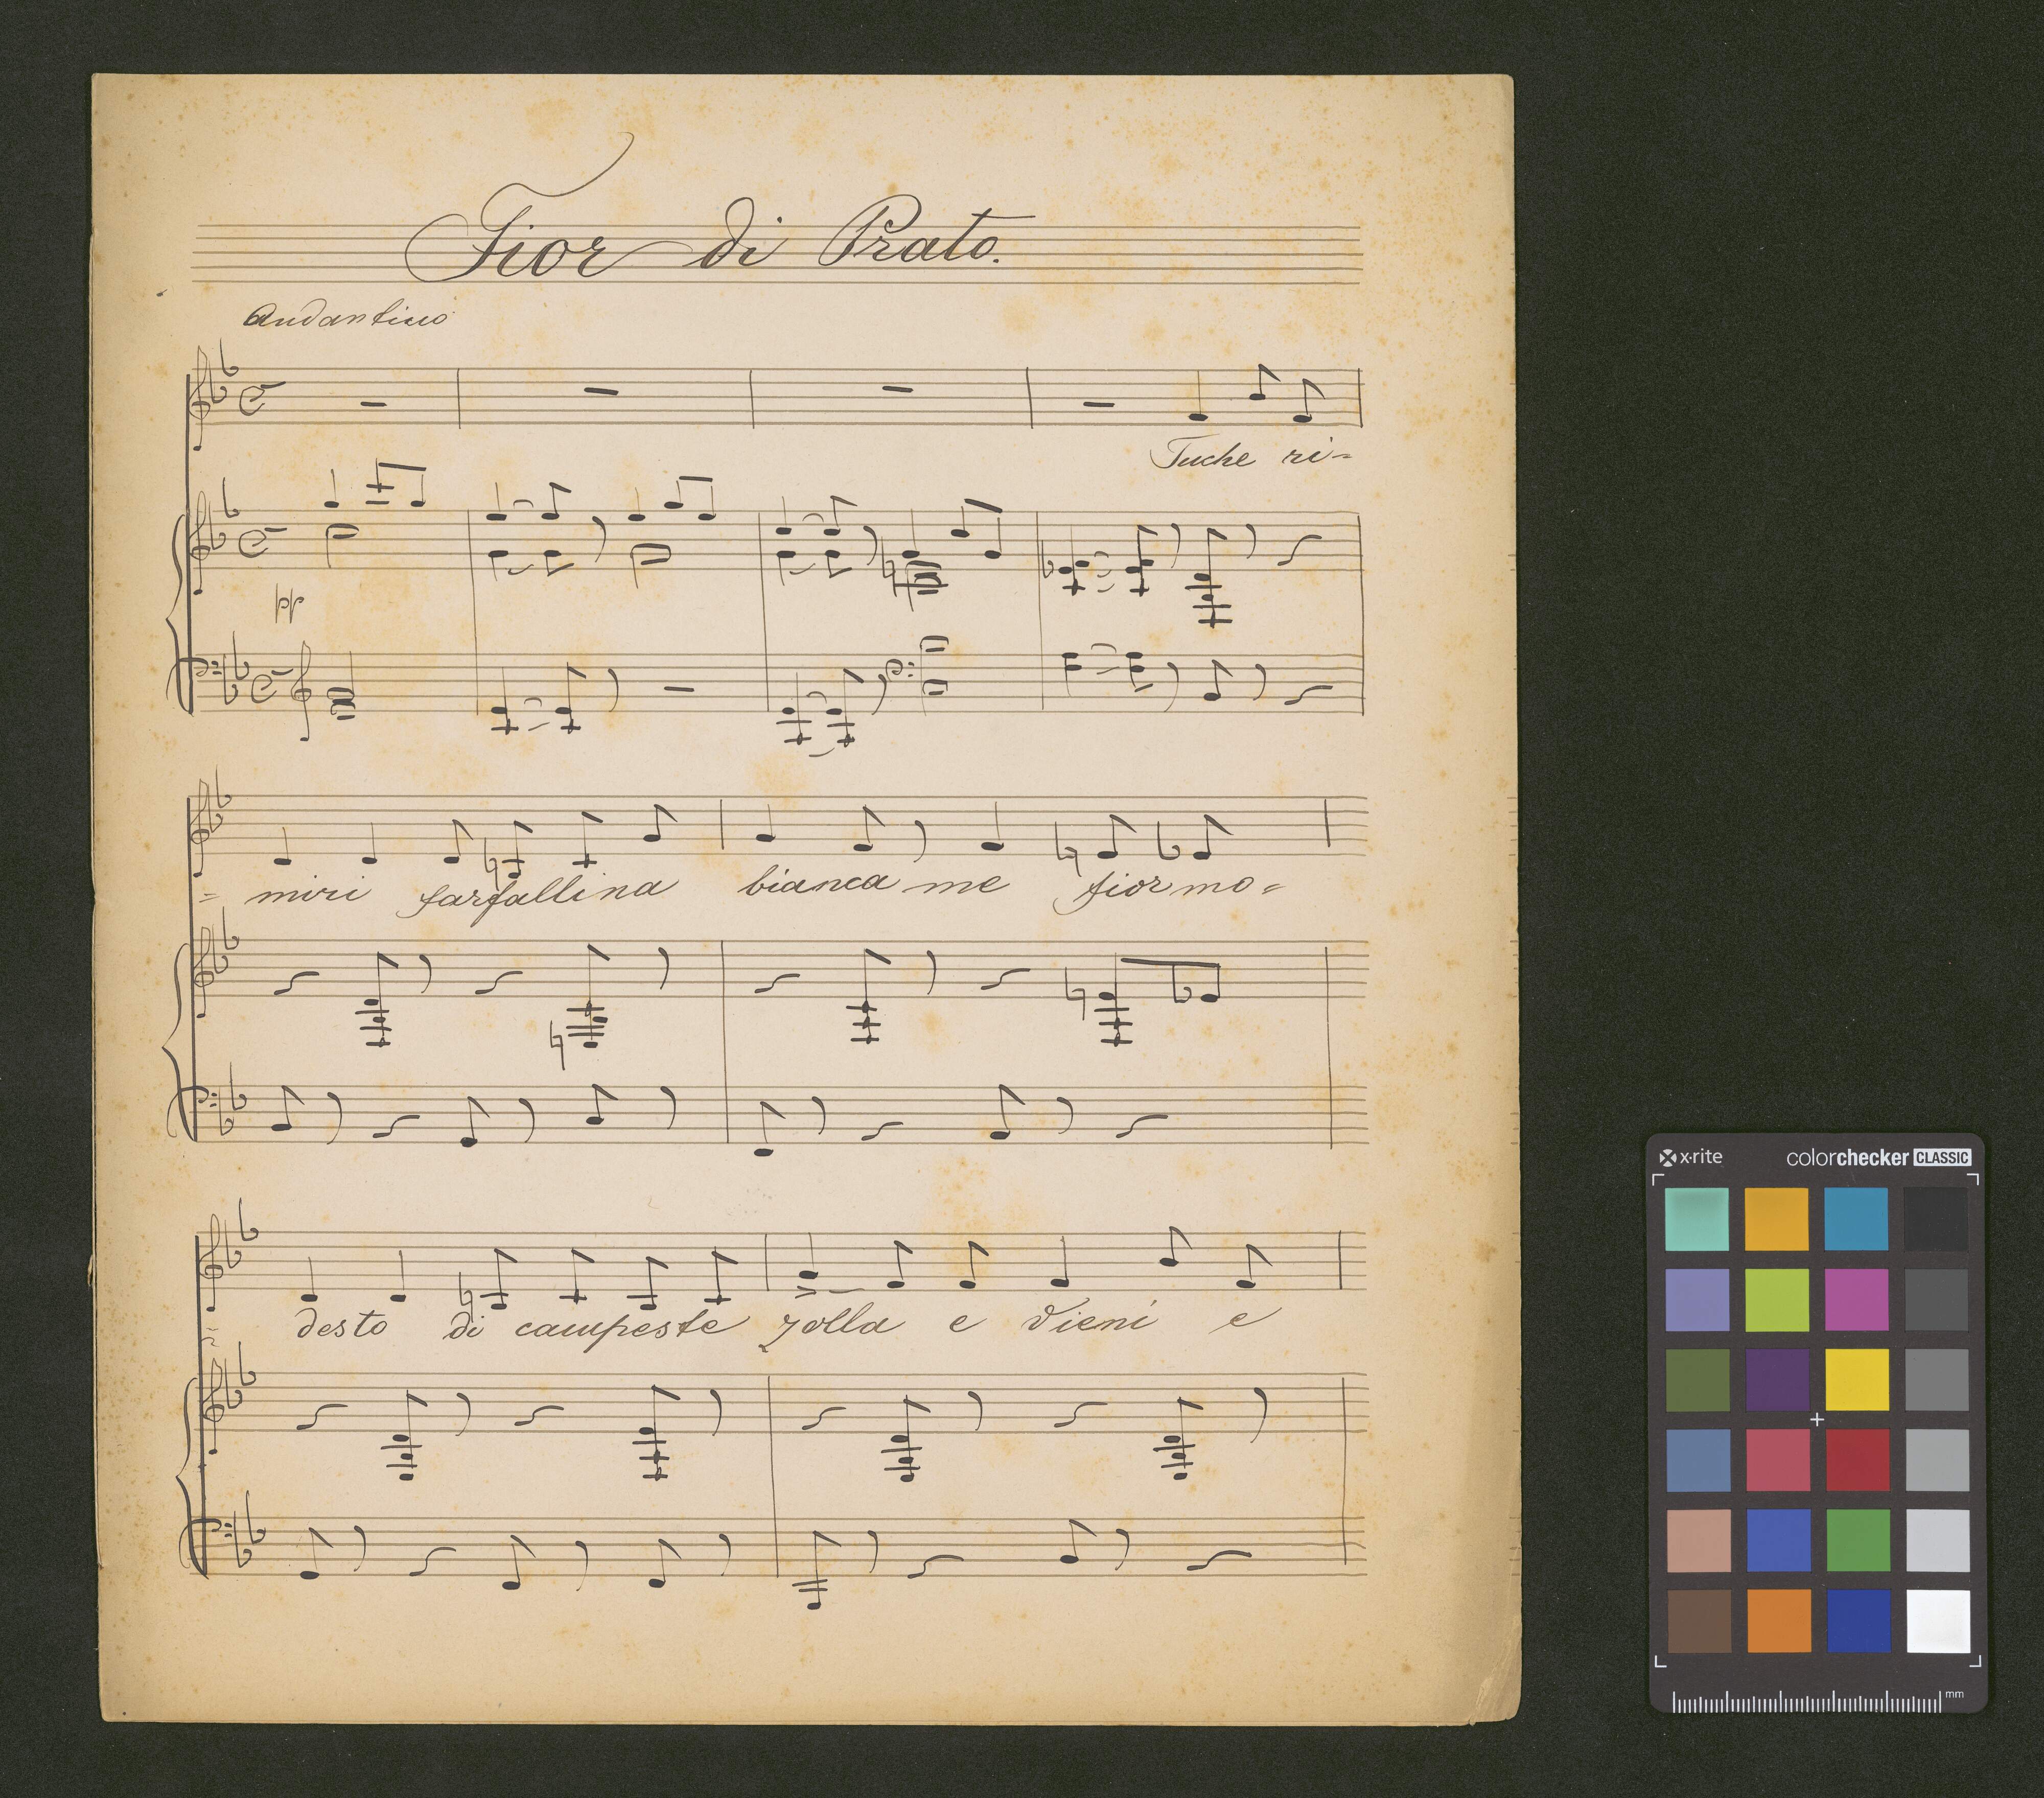 Fior di Prato.
Andantino
Tuche ri=
pp
= miri farfallina bianca me fior mo=
desto di campeste zolla e vieni e
x·rite colorchecker CLASSIC
mm